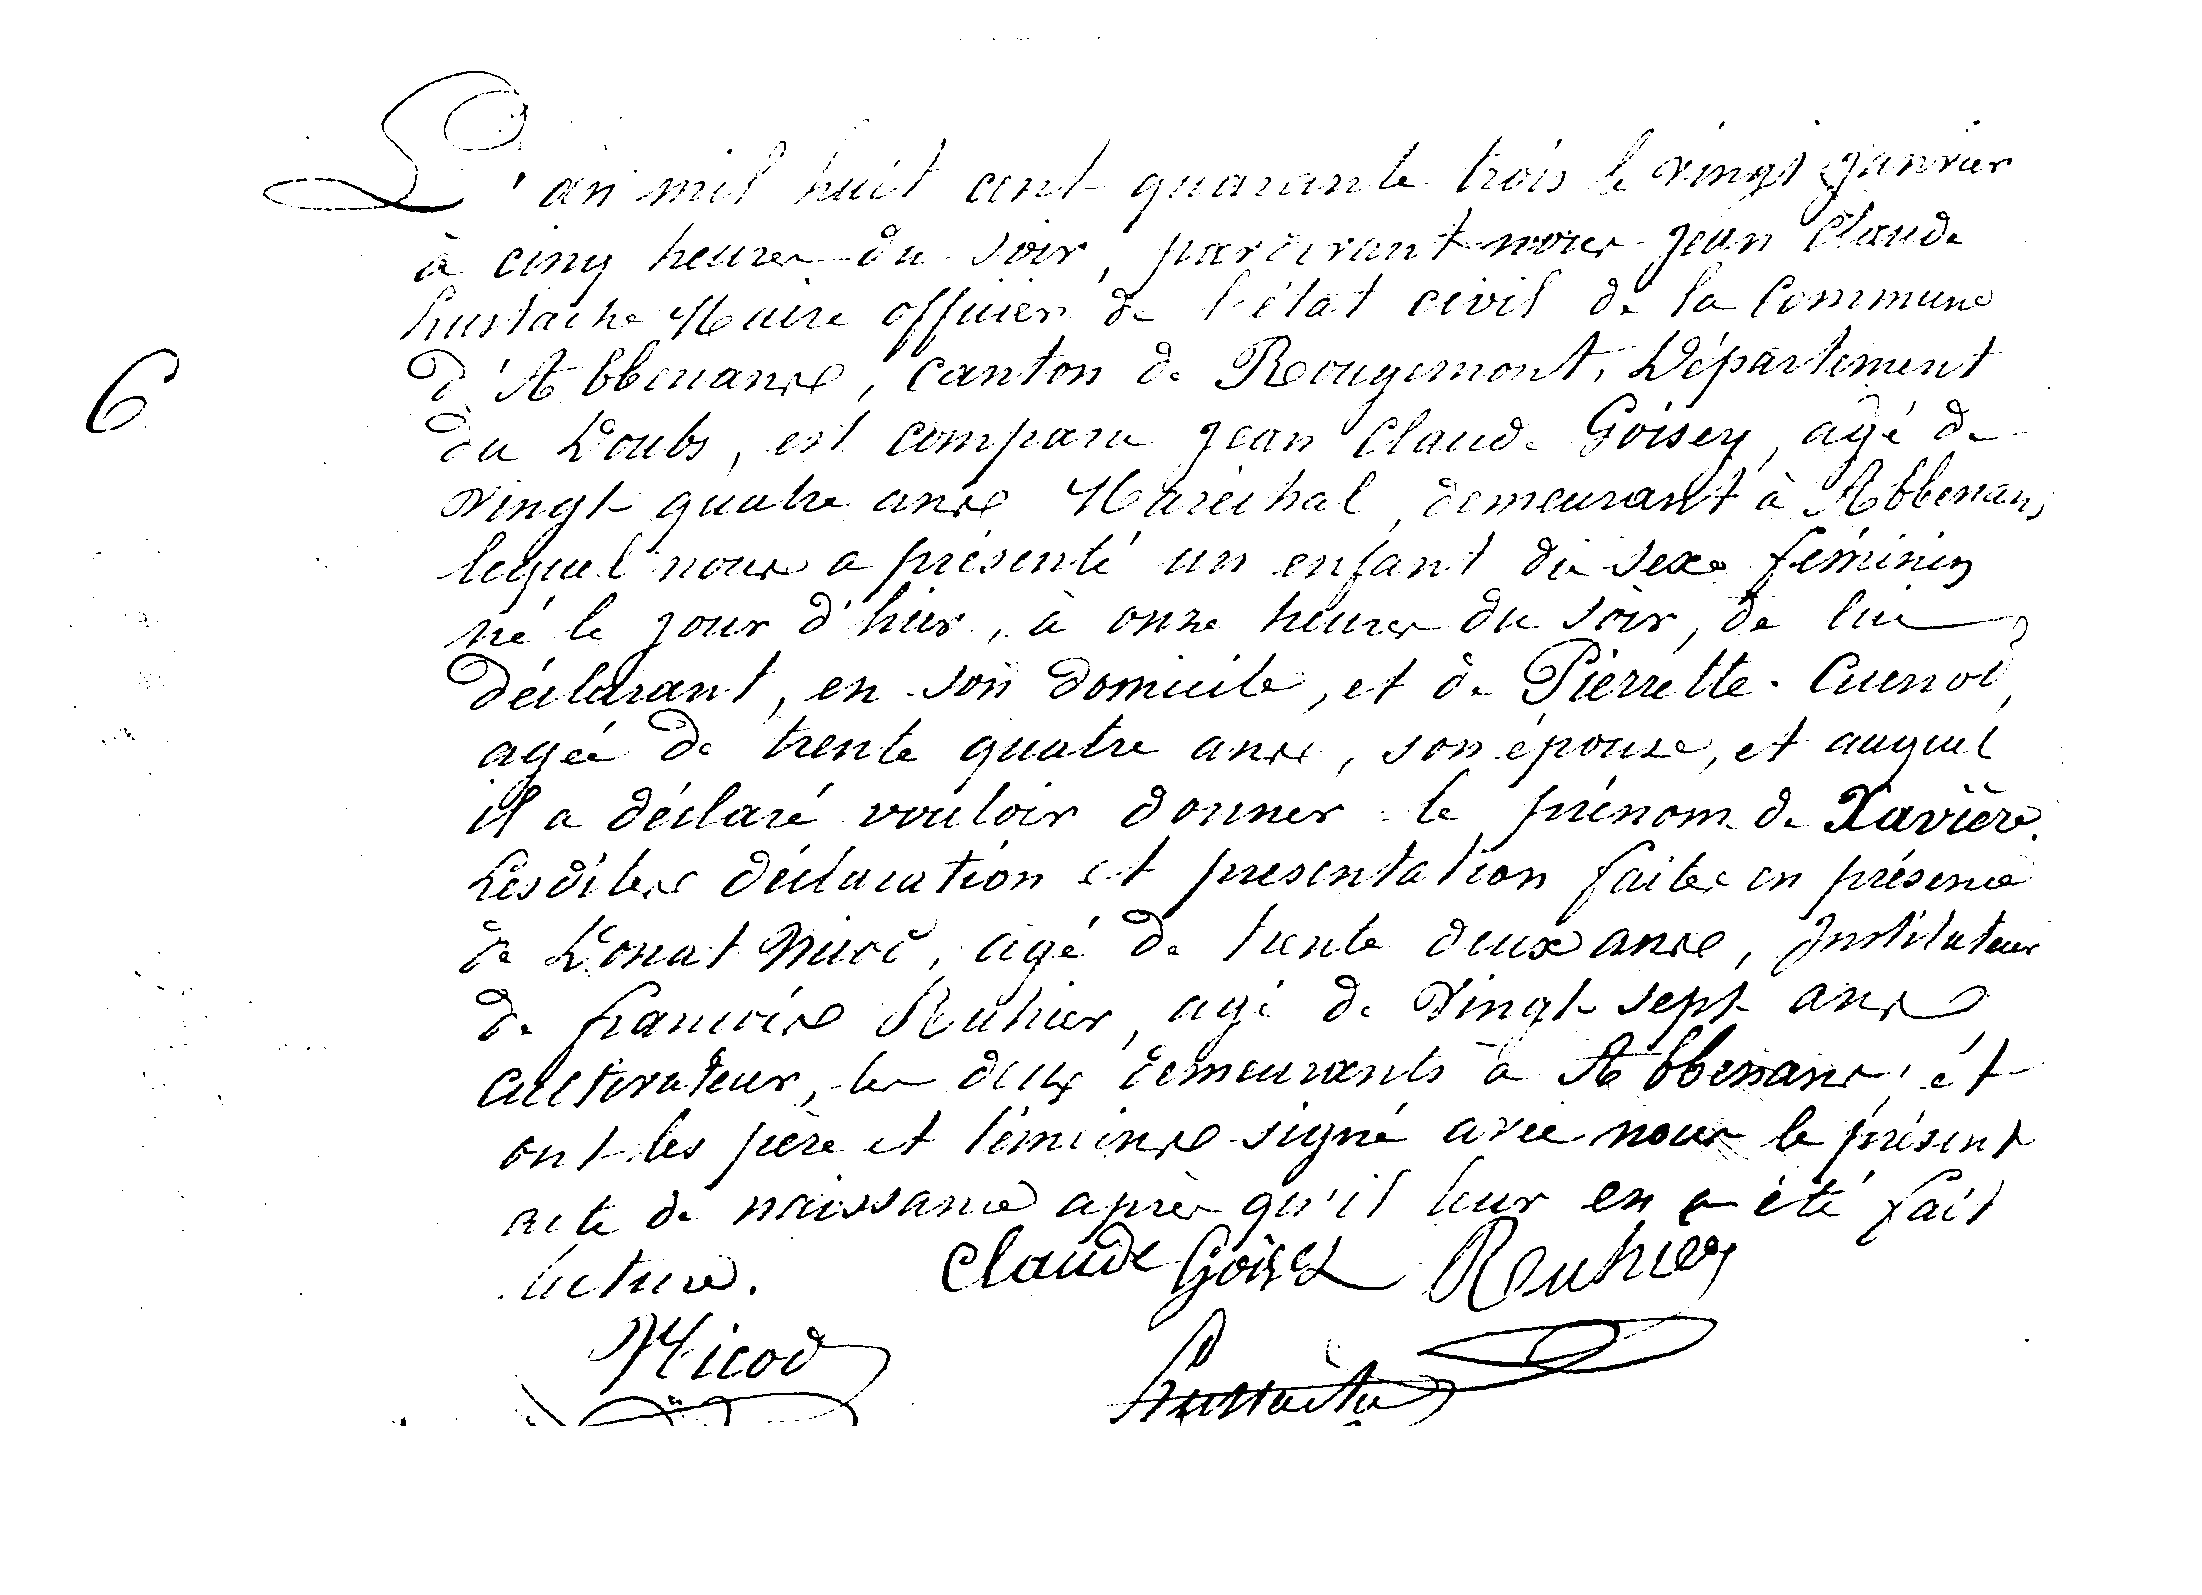 L'an mil huit cent quarante trois le vingt Janvier
à cinq heures du soir, pardevant nous Jean Claude
Eustache Maire officier de l'état civil de la Commune
6
d'Abbenans, Canton de Rougemont, Département
du Doubs, est comparu Jean Claude Goisey, agé de
vingt quatre ans Maréchal, demeurant à Abbenans,
lequel nous a présenté un enfant du sexe féminin
né le jour d'hier, à onze heures du soir, de lui
déclarant, en son domicile, et de Pierrette Cuenot,
agée de trente quatre ans, son épouse, et auquel
il a déclaré vouloir donner le prénom de Xavière.
Lesdites déclaration et présentation faites en présence
de Donat Nicod, agé de trente deux ans, Instituteur
de François Ruhier, agé de vingt sept ans
cultivateur, les deux demeurants à Abbenans, et
ont les père et témoins signé avec nous le présent
acte de naissance après qu'il leur en a été fait
lecture. Claude Goisey Reuhier
Nicod Eustache